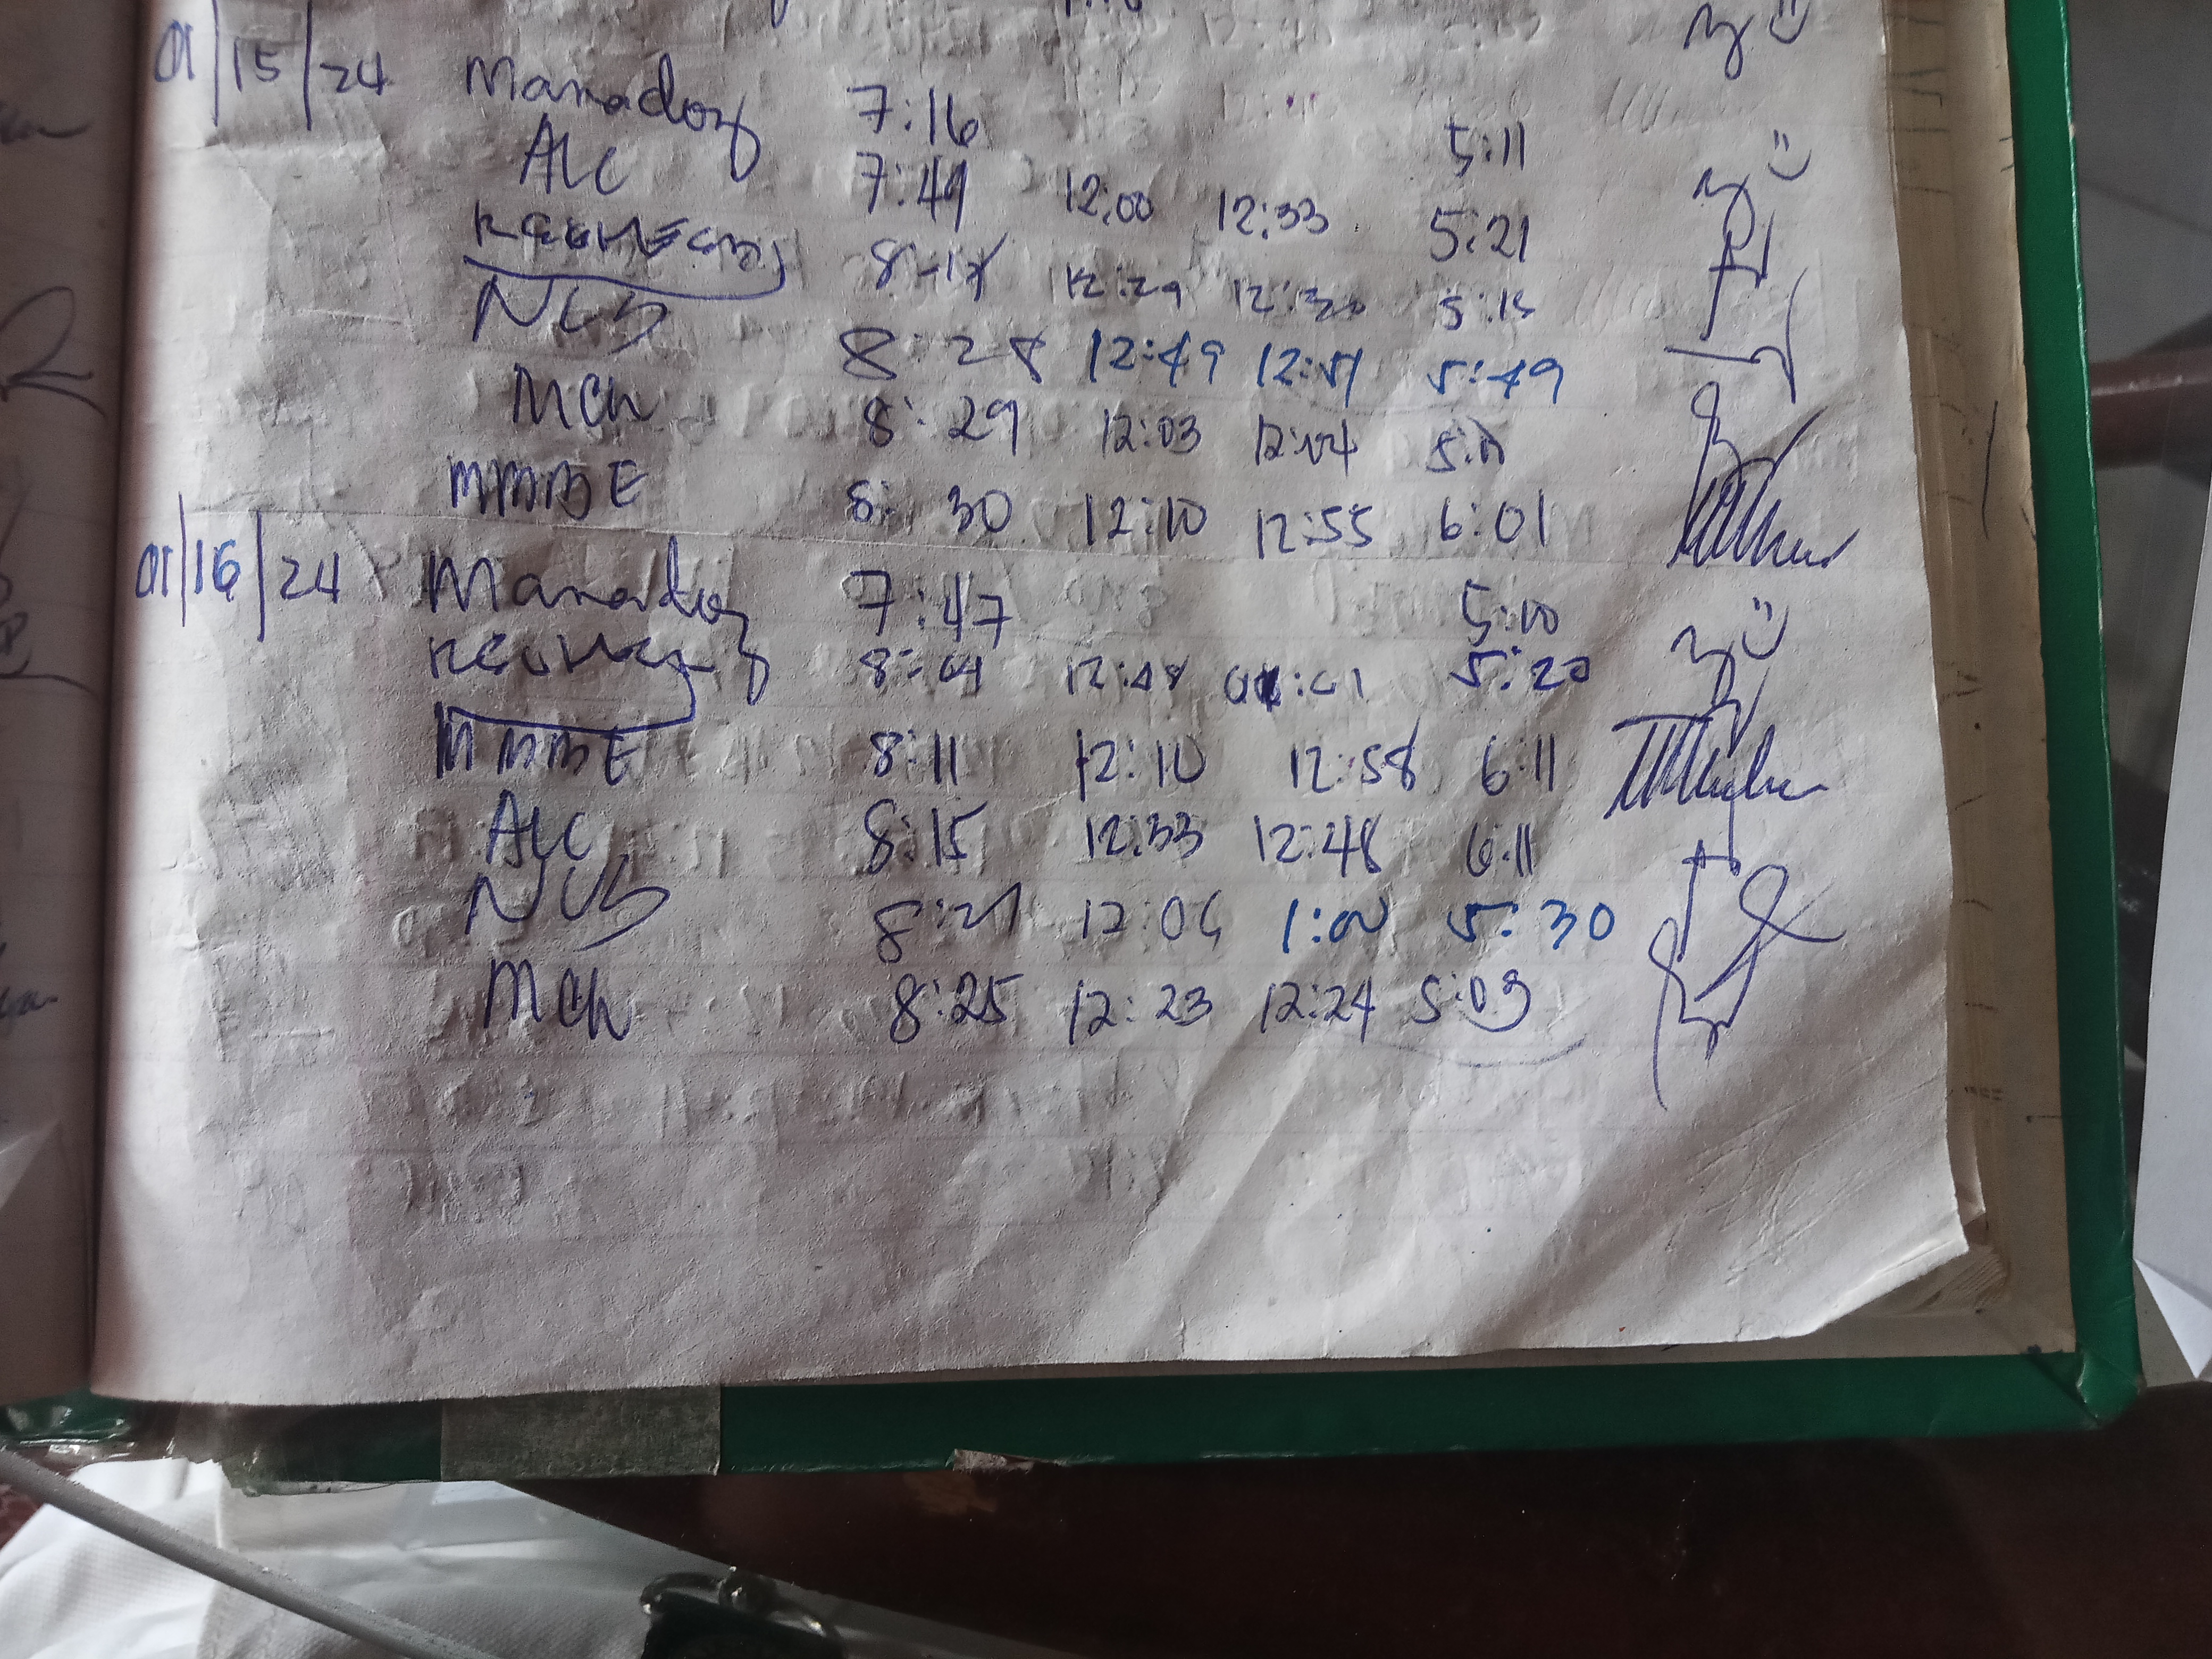 01/15/24 Manadoz 7:16 5:11
ALC 7:49 12:00 12:33 5:21
12:29 12:30 5:15
NCB 8:28 12:49 12:51 5:49
MCh 8:29 12:03 12:04
MMBE 8:30 12:10 12:55 6:01
01/16/24 Manadoz 7:47 5:10
8:04 12:48 5:20
MMBE 8:11 12:10 12:58 6:11
ALC 8:15 12:33 12:48 6:11
NCB 8:21 12:06 1:00 5:30
MCh 8:25 12:23 12:24 5:03